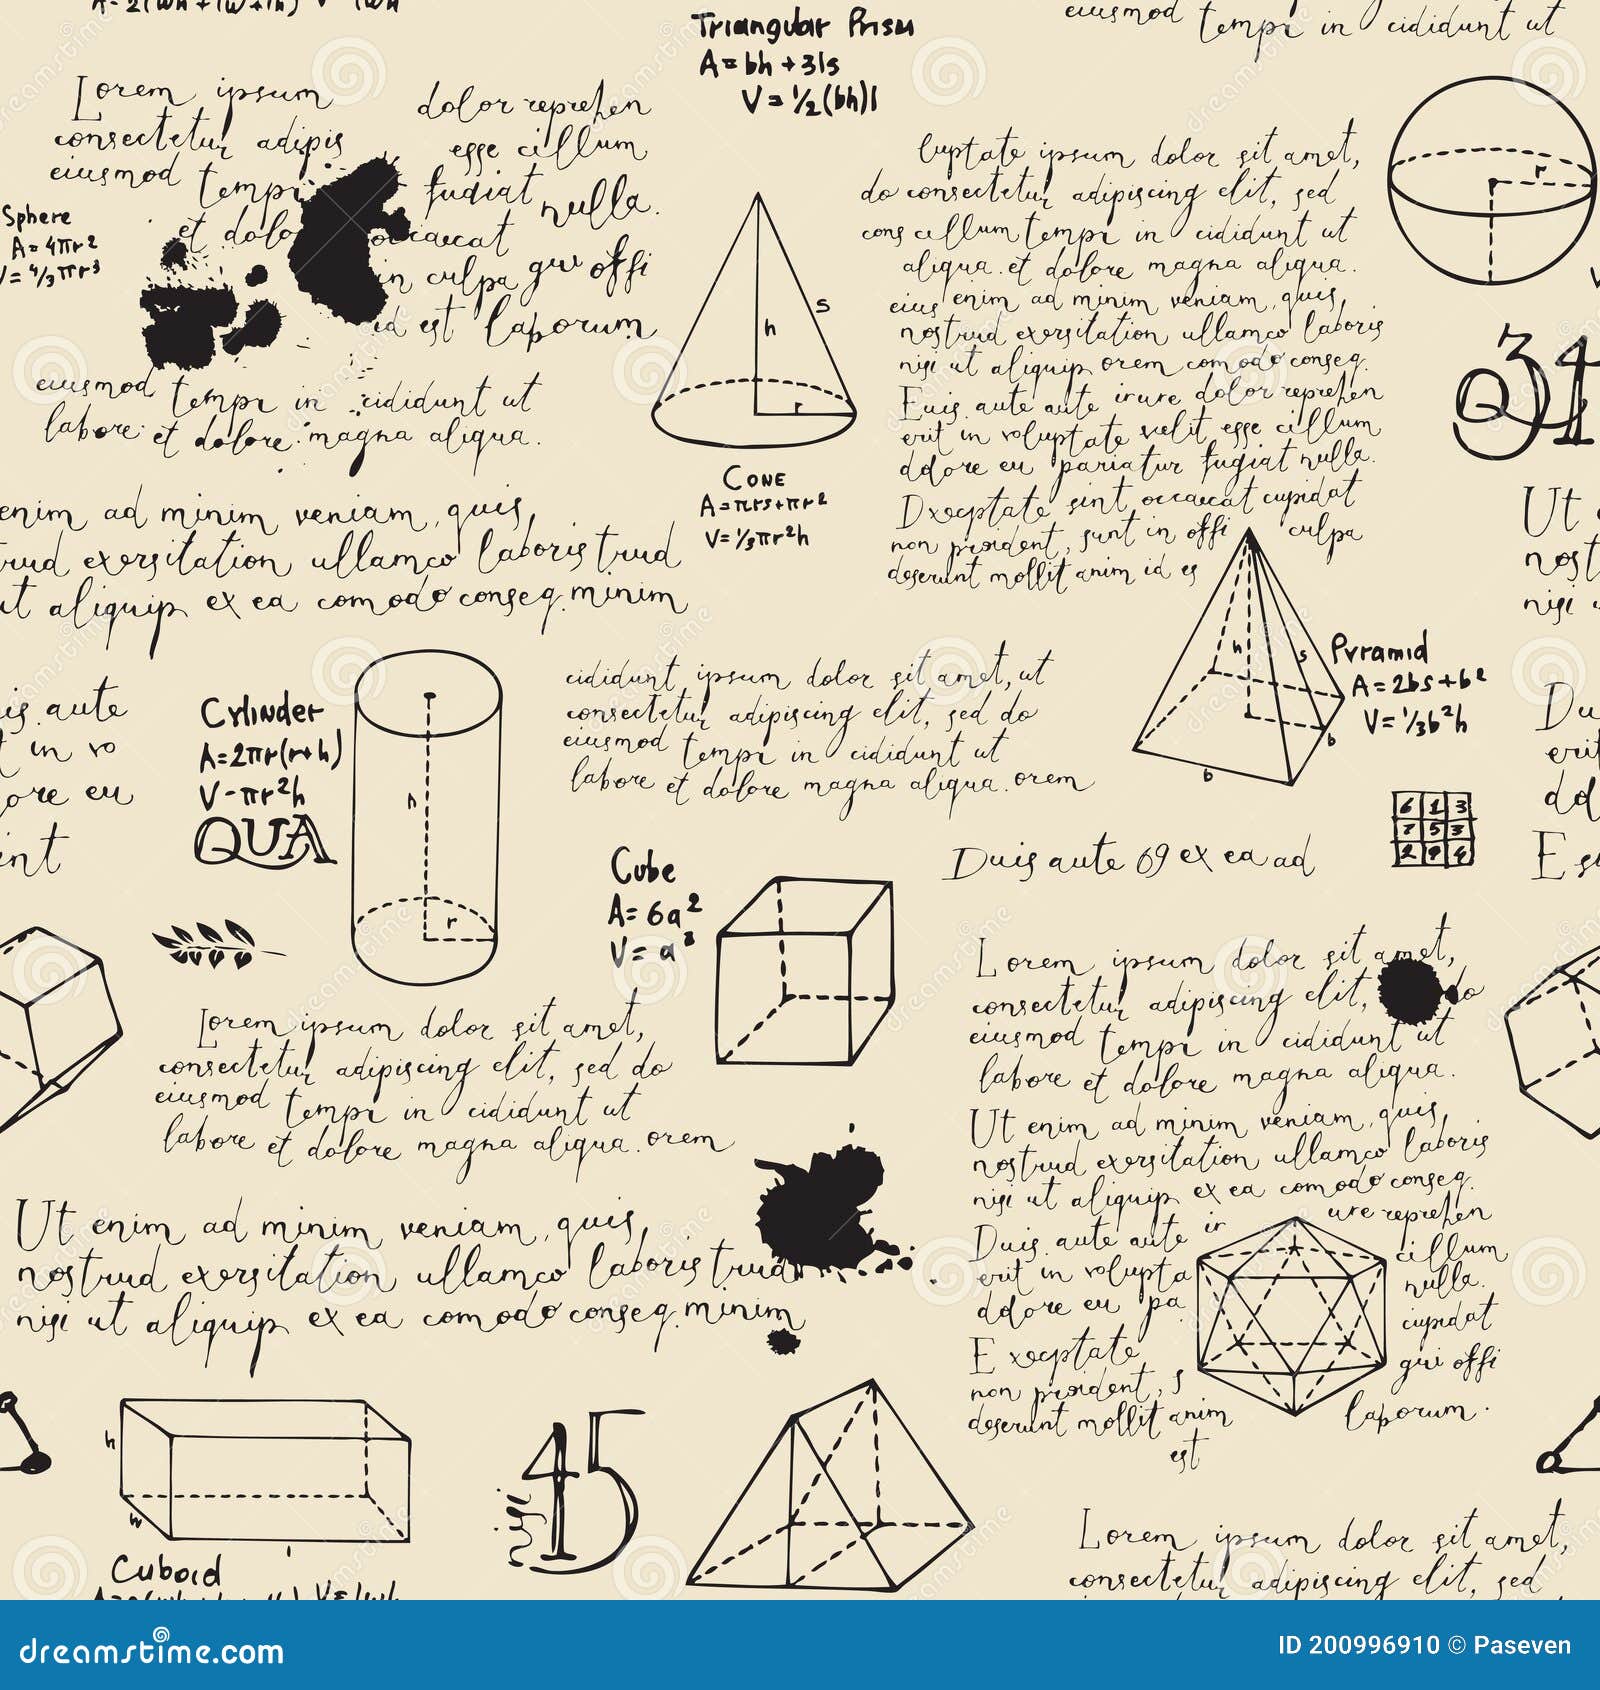 Triangular Prism
A=bh+3ls
V=½(bh)l
eiusmod tempr in cididunt ut
Lorem ipsum
consectetur adipis
eiusmod tempr
et dolo
dolor reprehen
esse cillum
fugiat nulla.
occaecat
in culpa qui offi
id est laporum
Sphere
A=4πr²
V=4/3πr³
eiusmod tempr in cididunt ut
labore et dolore magna aliqua.
enim ad minim veniam, quis,
trud exersitation ullamco laboris trud
ut aliquip ex ea comodo conseq. minim
h
s
r
CONE
A=πrs+πr²
V=⅓πr²h
luptate ipsum dolor sit amet,
do consectetur adipiscing elit, sed
cons cillum tempr in cididunt ut
aliqua. et dolore magna aliqua.
eius enim ad minim veniam, quis,
nostrud exersitation ullamco laboris
nisi ut aliquip orem comodo conseq.
Euis aute aute irure dolor reprehen
erit in voluptate velit esse cillum
ddore eu pariatur fugiat nulla.
Dxcptate sint occaecat cupidat
non proident, sunt in offi culpa
deserunt mollit anim id es
r
34
Ut
nost
nisi
h
s
b
b
Pyramid
A=2bs+b²
V=⅓b²h
is aute
t in vo
ore eu
ent
Cylinder
A=2πr(r+h)
V-πr²h
QUA
h
r
cididunt ipsum dolor sit amet, ut
consectetur adipiscing elit, sed do
eiusmod tempr in cididunt ut
labore et dolore magna aliqua. orem
Cube
A=6a²
V=a³
Duis aute 69 ex ea ad
6 1 3
7 5 3
2 9 4
Du
erit
dd
E su
Lorem ipsum dolor sit amet,
consectetur adipiscing elit, sed do
eiusmod tempr in cididunt ut
labore et dolore magna aliqua. orem
Lorem ipsum dolor sit amet,
consectetur adipiscing elit, do
eiusmod tempr in cididunt ut
labore et dolore magna aliqua.
Ut enim ad minim veniam, quis,
nostrud exersitation ullamco laboris
nisi ut aliquip ex ea comodo conseq.
Duis aute aute ir ure reprehen
erit in volupta cillum
ddore eu pa nulla.
Exceptate cupidat
non proident, s qui offi
deserunt mollit anim laporum.
est
Ut enim ad minim veniam, quis,
nostrud exersitation ullamco laboris trud
nisi ut aliquip ex ea comodo conseq. minim
h
w
l
Cuboid
45
Lorem ipsum dolor sit amet,
consectetur adipiscing elit, sed
dreamstime.com
ID 200996910 © Paseven